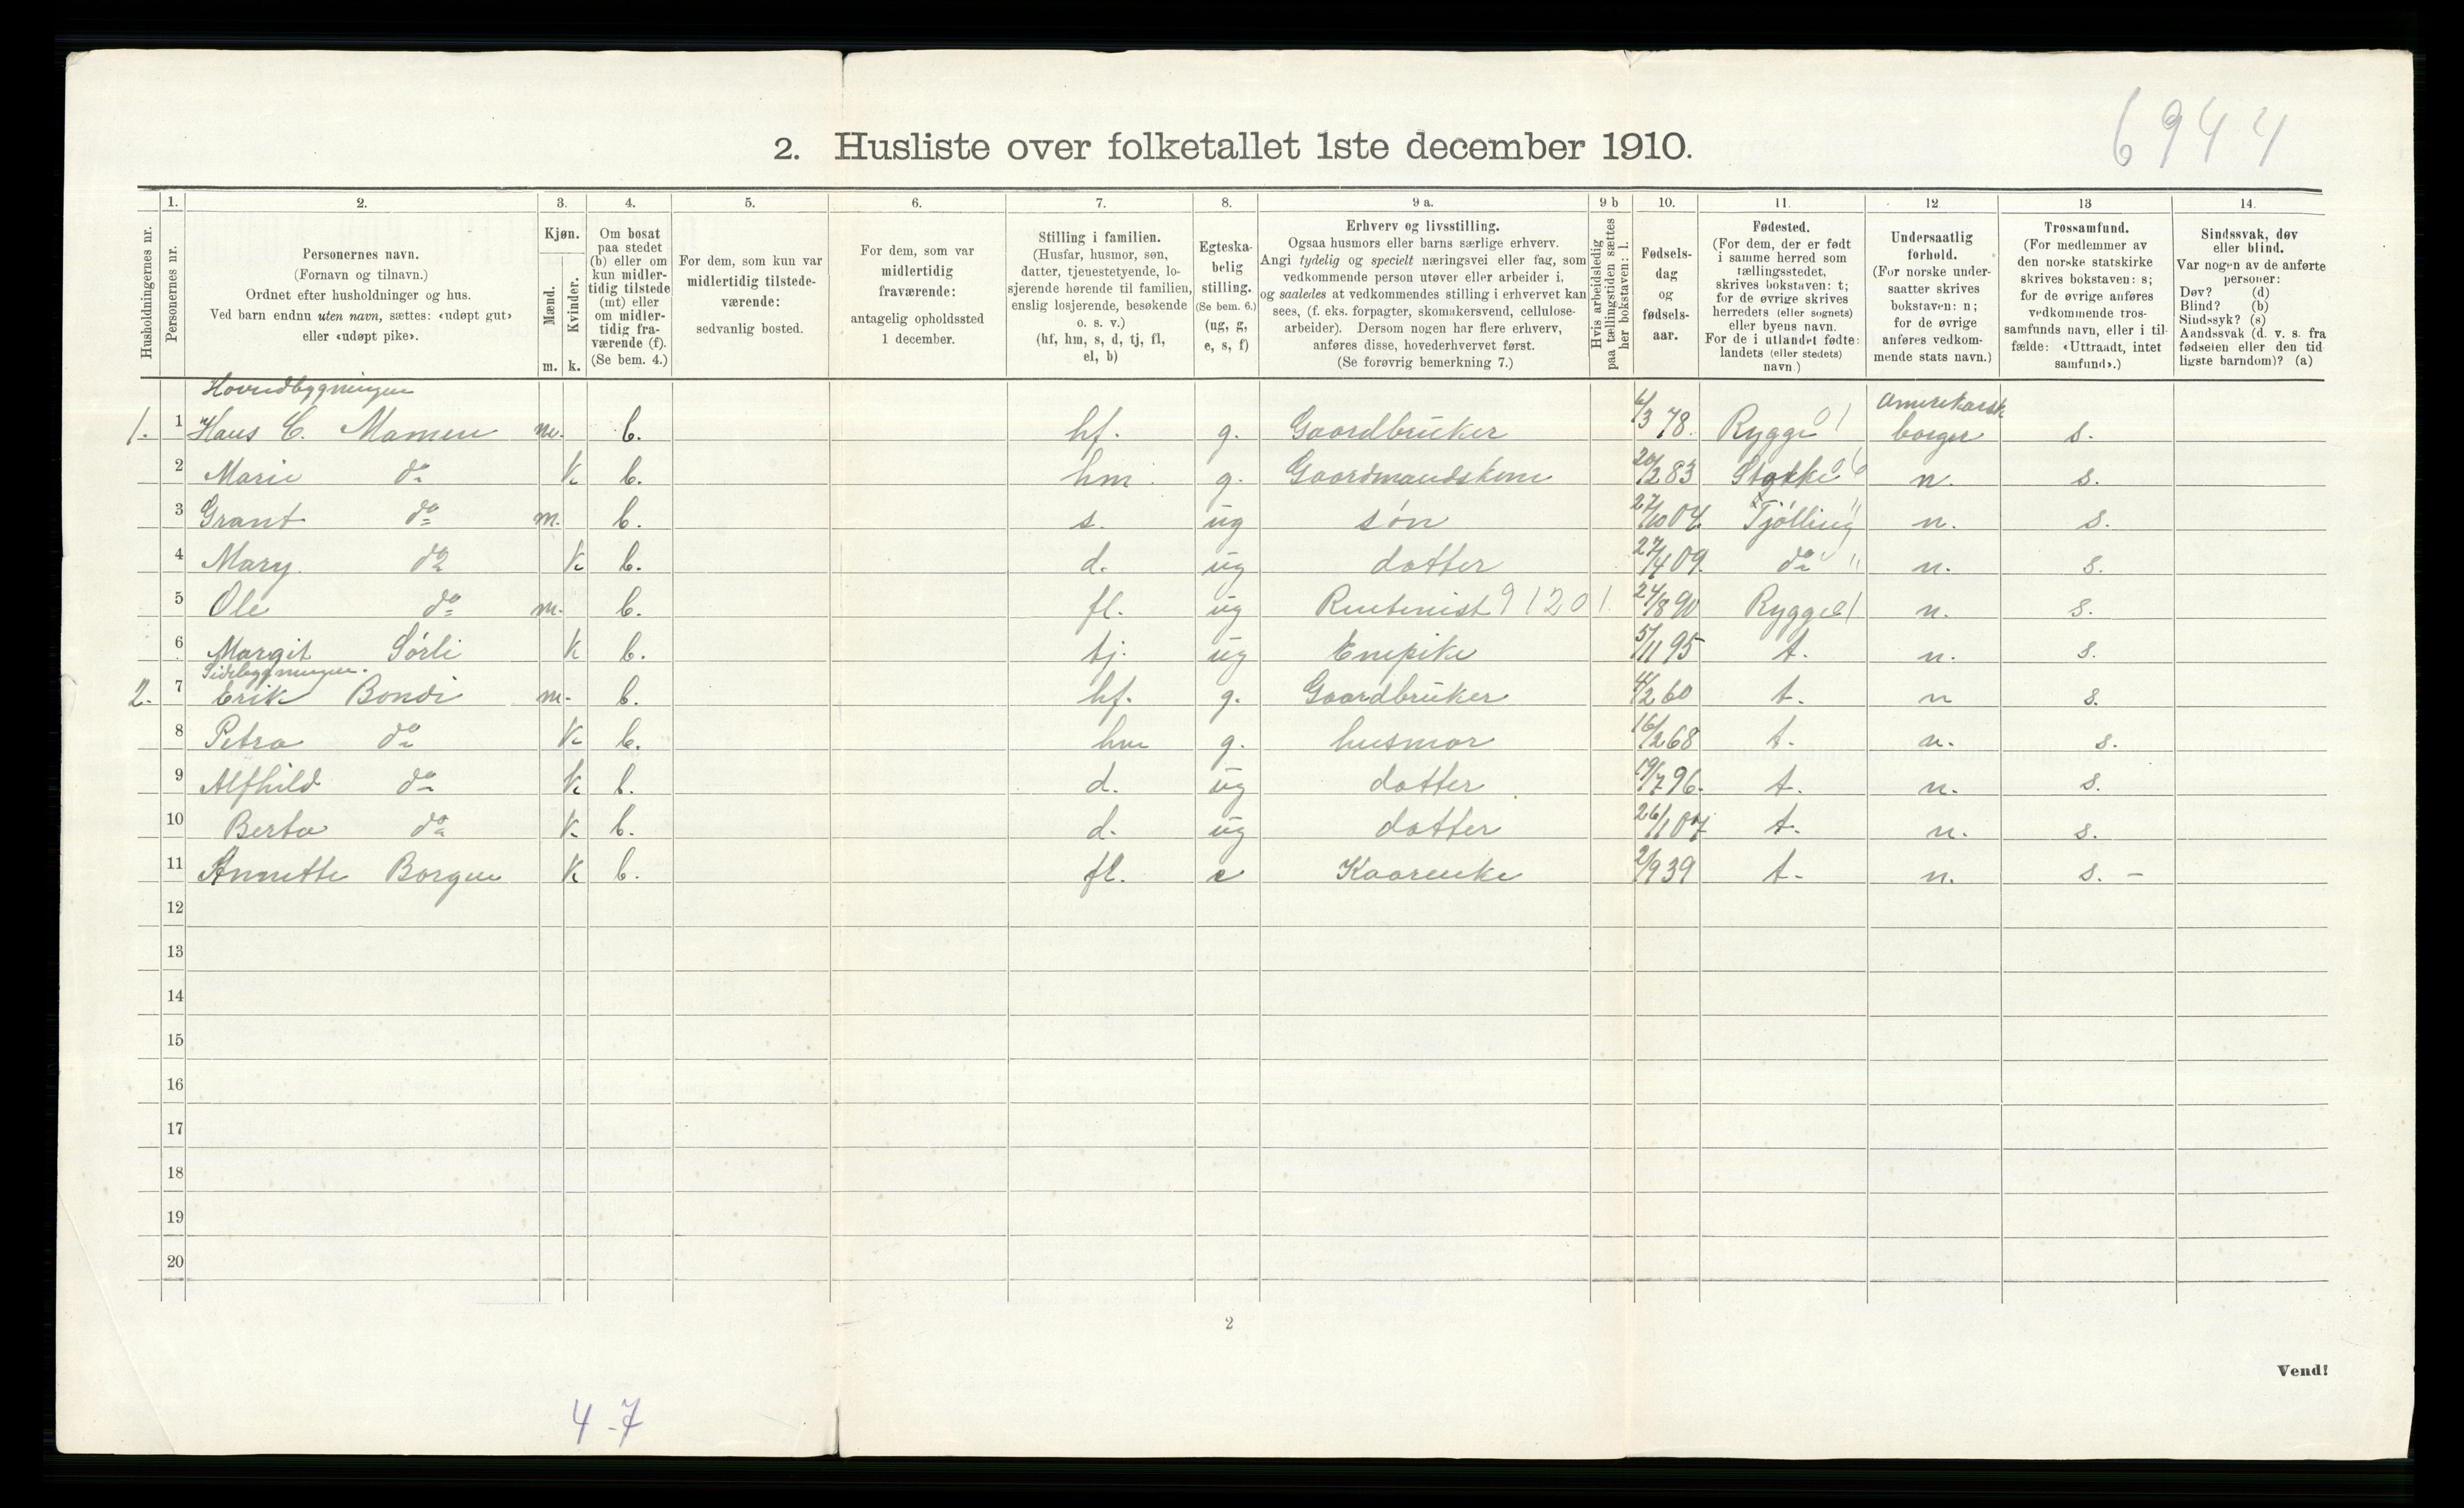 6944
2. Husliste over folketallet 1ste december 1910.
Husholdningernes nr.
1. Personernes nr.
2. Personernes navn. (Fornavn og tilnavn.) Ordnet efter husholdninger og hus. Ved barn endnu uten navn, sættes: «udøpt gut» eller «udøpt pike».
3. Kjøn. Mænd. m. Kvinder. k.
4. Om bosat paa stedet (b) eller om kun midlertidig tilstede (mt) eller om midlertidig fraværende (f). (Se bem. 4.)
5. For dem, som kun var midlertidig tilstedeværende: sedvanlig bosted.
6. For dem, som var midlertidig fraværende: antagelig opholdssted 1 december.
7. Stilling i familien. (Husfar, husmor, søn, datter, tjenestetyende, losjerende hørende til familien, enslig losjerende, besøkende o. s. v.) (hf, hm, s, d, tj, fl, el, b)
8. Egteskabelig stilling. (Se bem. 6.) (ug, g, e, s, f)
9 a. Erhverv og livsstilling. Ogsaa husmors eller barns særlige erhverv. Angi tydelig og specielt næringsvei eller fag, som vedkommende person utøver eller arbeider i, og saaledes at vedkommendes stilling i erhvervet kan sees, (f. eks. forpagter, skomakersvend, cellulosearbeider). Dersom nogen har flere erhverv, anføres disse, hovederhvervet først. (Se forøvrig bemerkning 7.)
9 b Hvis arbeidsledig paa tællingstiden sættes her bokstaven: l.
10. Fødselsdag og fødselsaar.
11. Fødested. (For dem, der er født i samme herred som tællingsstedet, skrives bokstaven: t; for de øvrige skrives herredets (eller sognets) eller byens navn. For de i utlandet fødte: landets (eller stedets) navn.)
12 Undersaatlig forhold. (For norske undersaatter skrives bokstaven: n; for de øvrige anføres vedkommende stats navn.)
13 Trossamfund. (For medlemmer av den norske statskirke skrives bokstaven: s; for de øvrige anføres vedkommende trossamfunds navn, eller i tilfælde: «Uttraadt, intet samfund».)
14. Sindssvak, døv eller blind. Var nogen av de anførte personer: Døv? (d) Blind? (b) Sindssyk? (s) Aandssvak (d. v. s. fra fødselen eller den tidligste barndom)? (a)
Hovedbygningen
1. 1 Hans C. Mamen m. b. hf. g. Gaardbruker 6/3 78. Rygge 01 Amerikansk borger s.
2 Marie do k b. hm. g. Gaardmandskone 20/2 83 Stokke 06 n. s.
3 Grant do m. b. s. ug søn 27/10 04. Tjølling " n. s.
4 Mary do k b. d. ug datter 27/4 09. do " n. s.
5 Ole do m. b. fl. ug Rentenist 9120 1. 24/8 90 Rygge 01 n. s.
6 Margit Sørli k b. tj. ug Enepike 5/11 95 t. n. s.
Sidebygningen.
2. 7 Erik Bondi m. b. hf. g. Gaardbruker 4/2 60 t. n s.
8 Petra do k b. hm g. husmor 16/2 68 t. n. s.
9 Alfhild do k b. d. ug datter 19/7 96. t. n. s.
10 Berta do k. b. d. ug datter 26/1 07 t. n. s.
11 Annette Borgen k b. fl. e Kaarenke 2/9 39 t. n. s. -
12
13
14
15
16
17
18
19
20
2
Vend!
4-7